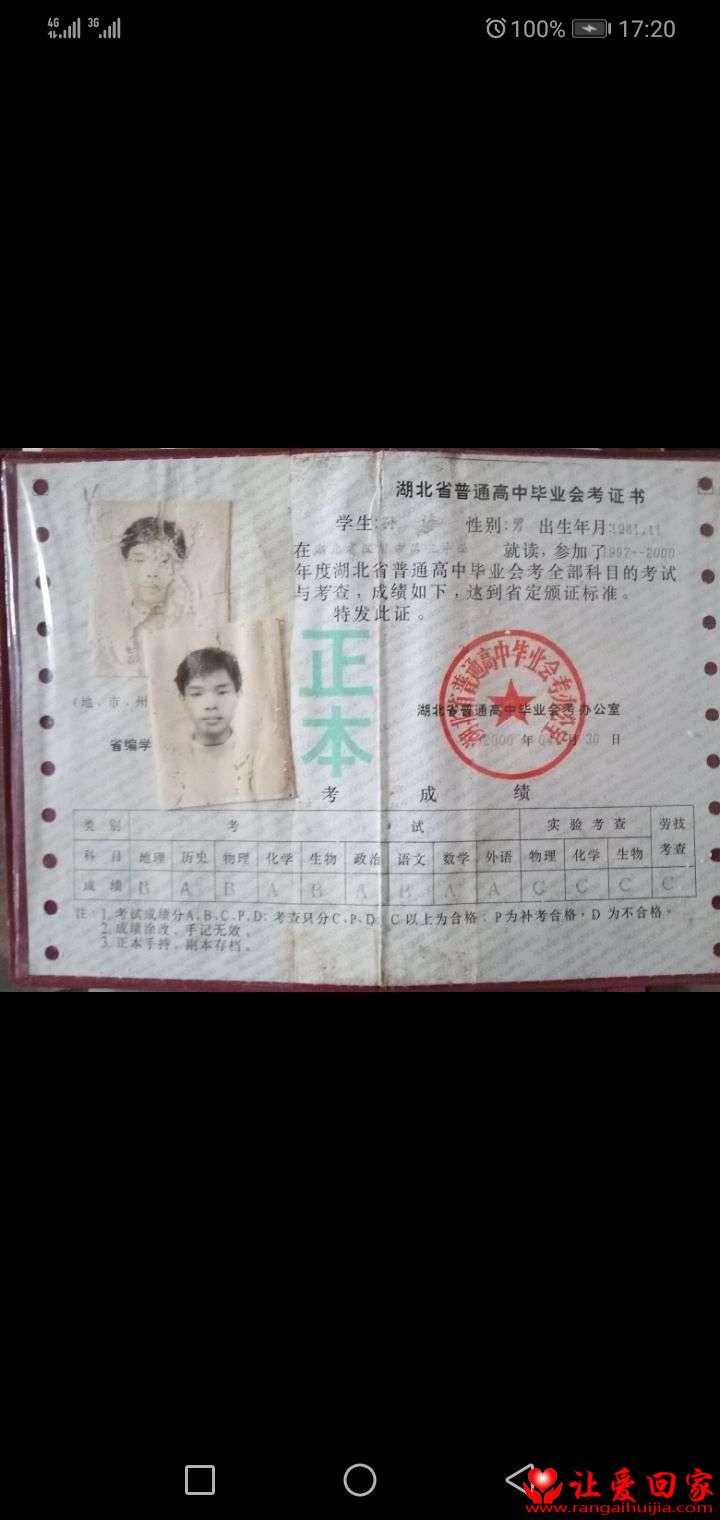 4G 3G 100% 17:20
湖北省普通高中毕业会考证书
学生: 性别:男 出生年月:1981.11
在 就读,参加了1997--2000
年度湖北省普通高中毕业会考全部科目的考试
与考查,成绩如下,达到省定颁证标准。
特发此证。
正本
(地、市、州
湖北省普通高中毕业会考办公室
省编学
年 月30日
考 成 绩
类 别 考 试 实验考查 劳技考查
科 目 地理 历史 物理 化学 生物 政治 语文 数学 外语 物理 化学 生物
成 绩 B A B A B A B A A C C C C
注:1.考试成绩分A、B、C、P、D;考查只分C、P、D;C以上为合格;P为补考合格,D为不合格。
2.成绩涂改、手记无效。
3.正本手持、副本存档。
让爱回家
www.rangaihuijia.com